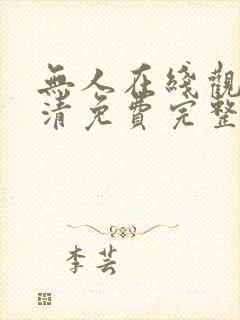 無人在綫觀
清免費完整
李芸